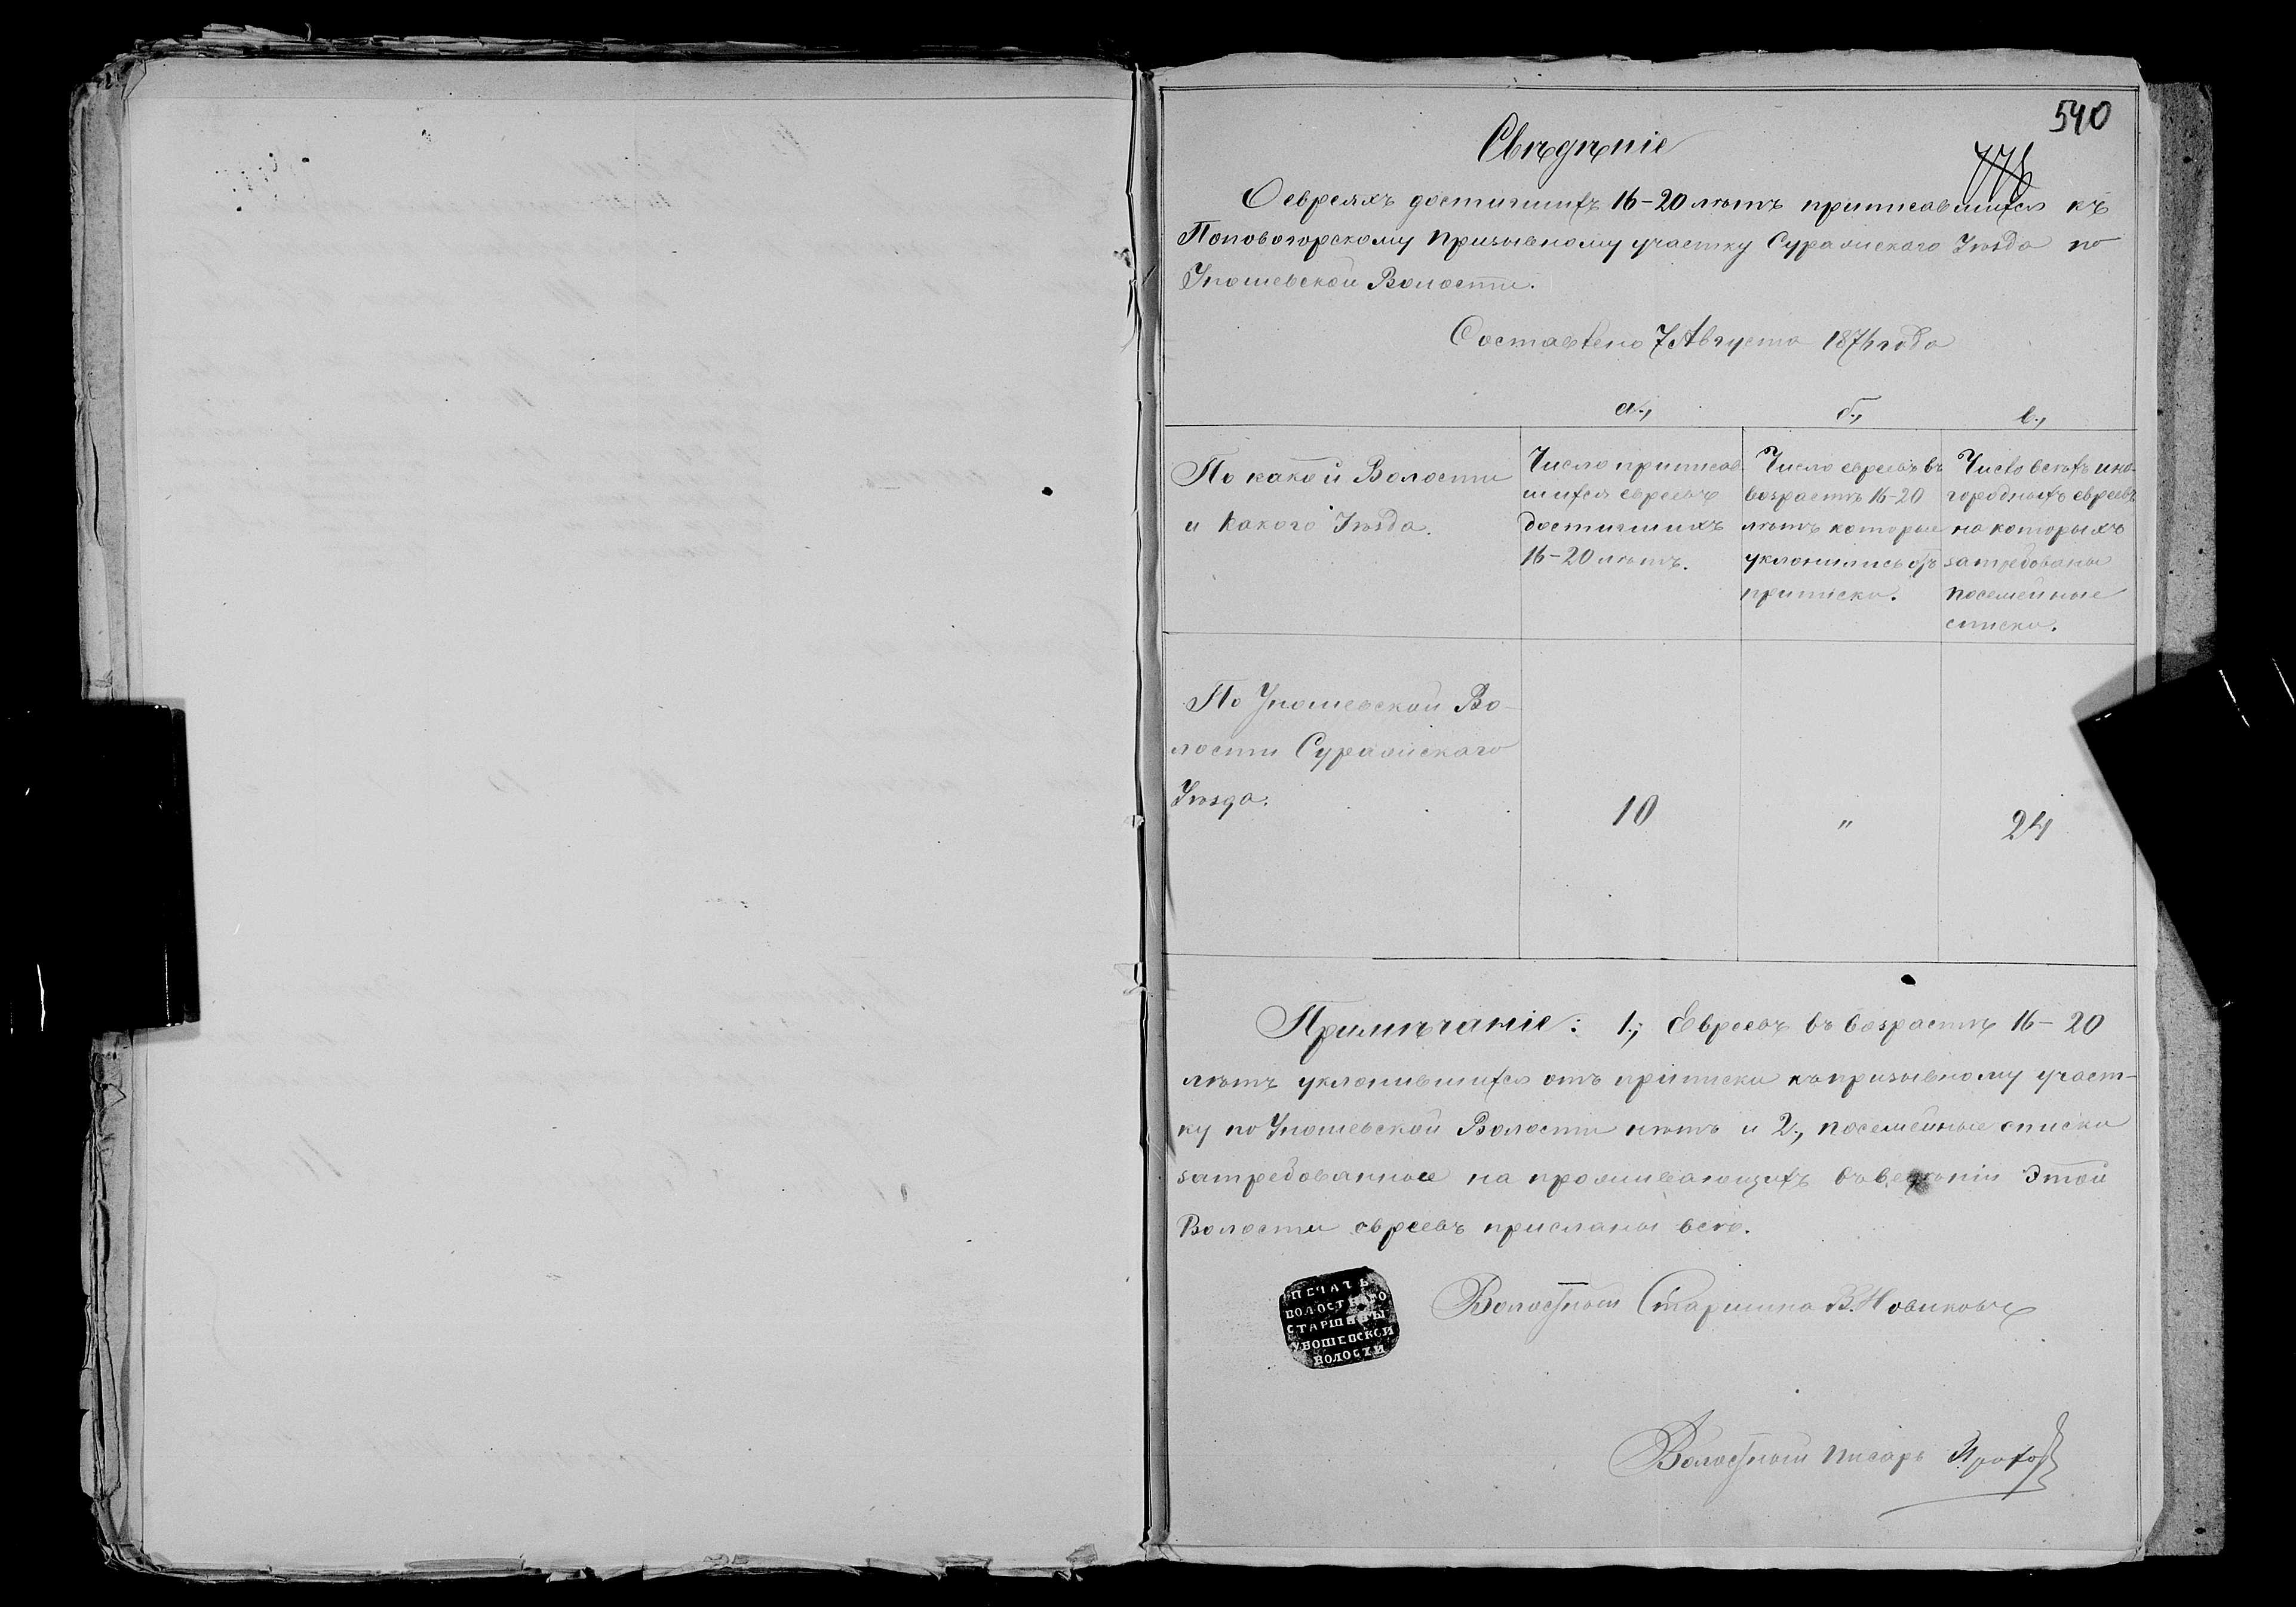 540
778
Свѣдѣніе
О евреяхъ достигшихъ 16-20 лѣтъ приписавшихся къ
Поповогорскому призывному участку Суражскаго Уѣзда по
Уношевской Волости.
Составлено 7 Августа 1876 года
а., б., в.,
По какой Волости
и какого Уѣзда.
Число приписав
шихся евреевъ
достигшихъ
16-20 лѣтъ.
Число евреевъ въ
возрастѣ 16-20
лѣтъ которые
уклонились отъ
приписки.
Число всѣхъ ино-
городныхъ евреевъ
на которыхъ
затребованы
посемейные
списки.
По Уношевской Во-
лости Суражскаго
Уѣзда.
10 " 24
Примѣчаніе: 1., Евреевъ въ возрастѣ 16-20
лѣтъ уклонившихся отъ приписки къ призывному участ-
ку по Уношевской Волости нѣтъ и 2., посемейные списки
затребованные на проживающихъ въ веденіи этой
Волости евреевъ присланы всѣ.
ПЕЧАТЬ
ВОЛОСТНАГО
СТАРШИНЫ
УНОШЕВСКОЙ
ВОЛОСТИ
Волостный Старшина В. Новиковъ
Волостный писарь